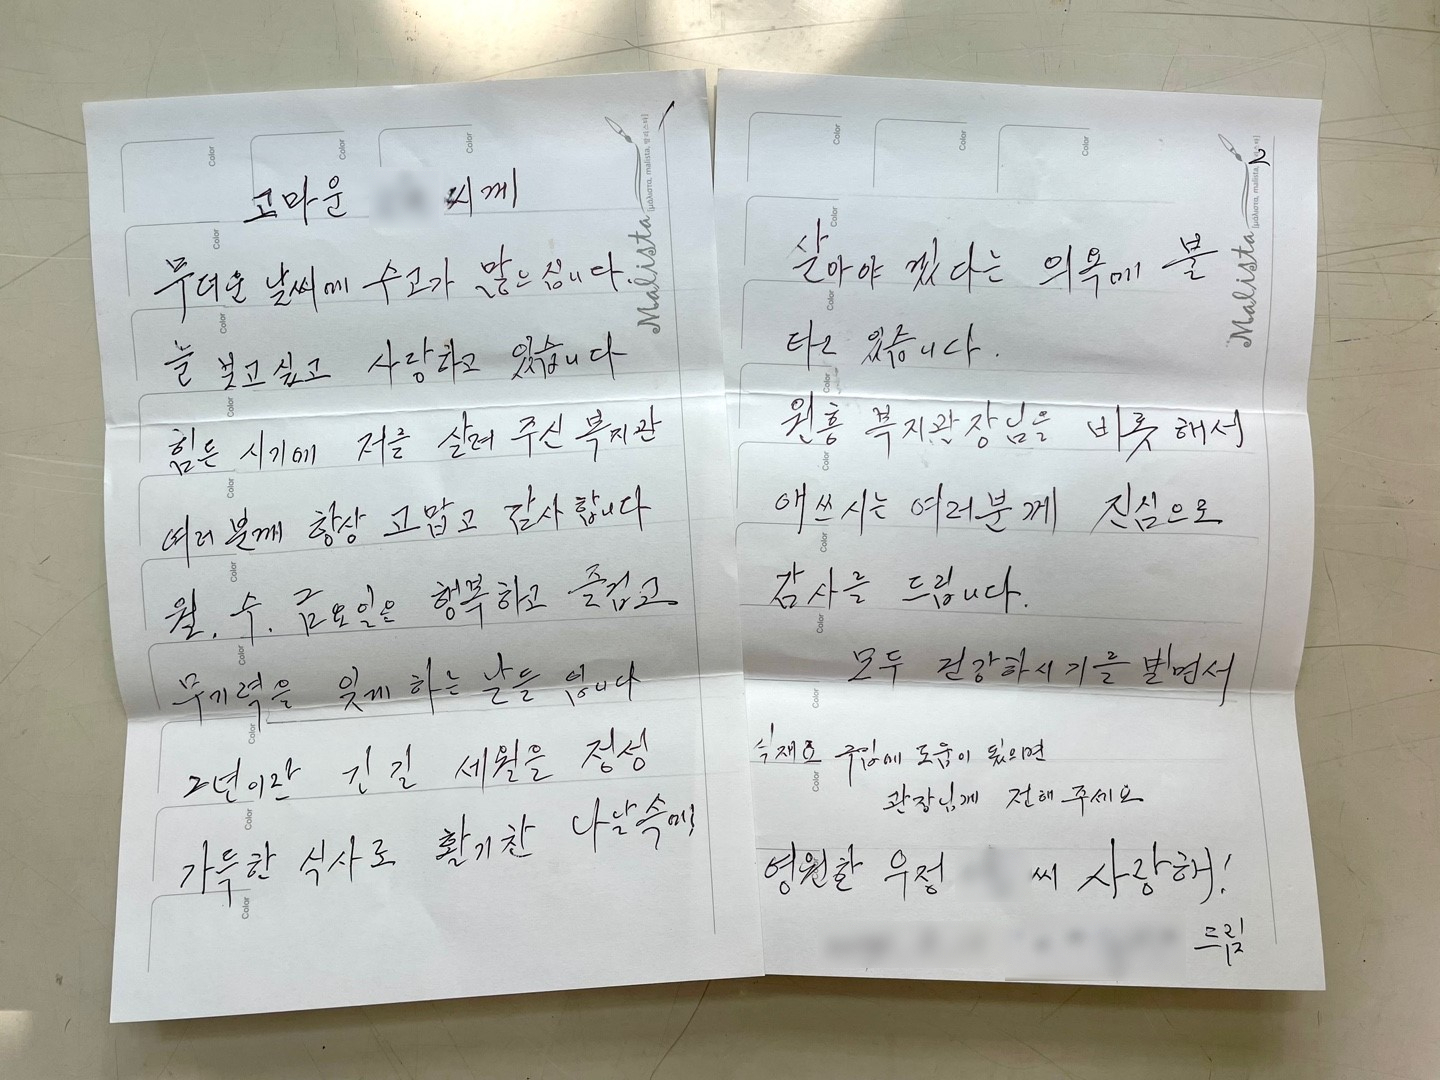 고마운 씨께
무더운 날씨에 수고가 많으심니다.
늘 보고싶고 사랑하고 있습니다
힘든 시기에 저를 살려 주신 복지관
여러분께 항상 고맙고 감사합니다
월. 수. 금요일은 행복하고 즐겁고
무기력을 잊게 하는 날들 입니다
2년이란 긴긴 세월을 정성
가득한 식사로 활기찬 나날속에
Malista
[μάλιστα, malista, 말리스타]
Color
Color
Color
Color
Color
Color
Color
Color
Color
Color
Color
Color
2
살아야 겠다는 의욕에 불
타고 있습니다.
원흥 복지관장님을 비롯해서
애쓰시는 여러분께 진심으로
감사를 드립니다.
모두 건강하시기를 빌면서
식재료 구입에 도움이 됬으면
관장님께 전해주세요
영원한 우정 씨 사랑해!
드림
Malista
Color
Color
Color
Color
Color
Color
Color
Color
Color
Color
Color